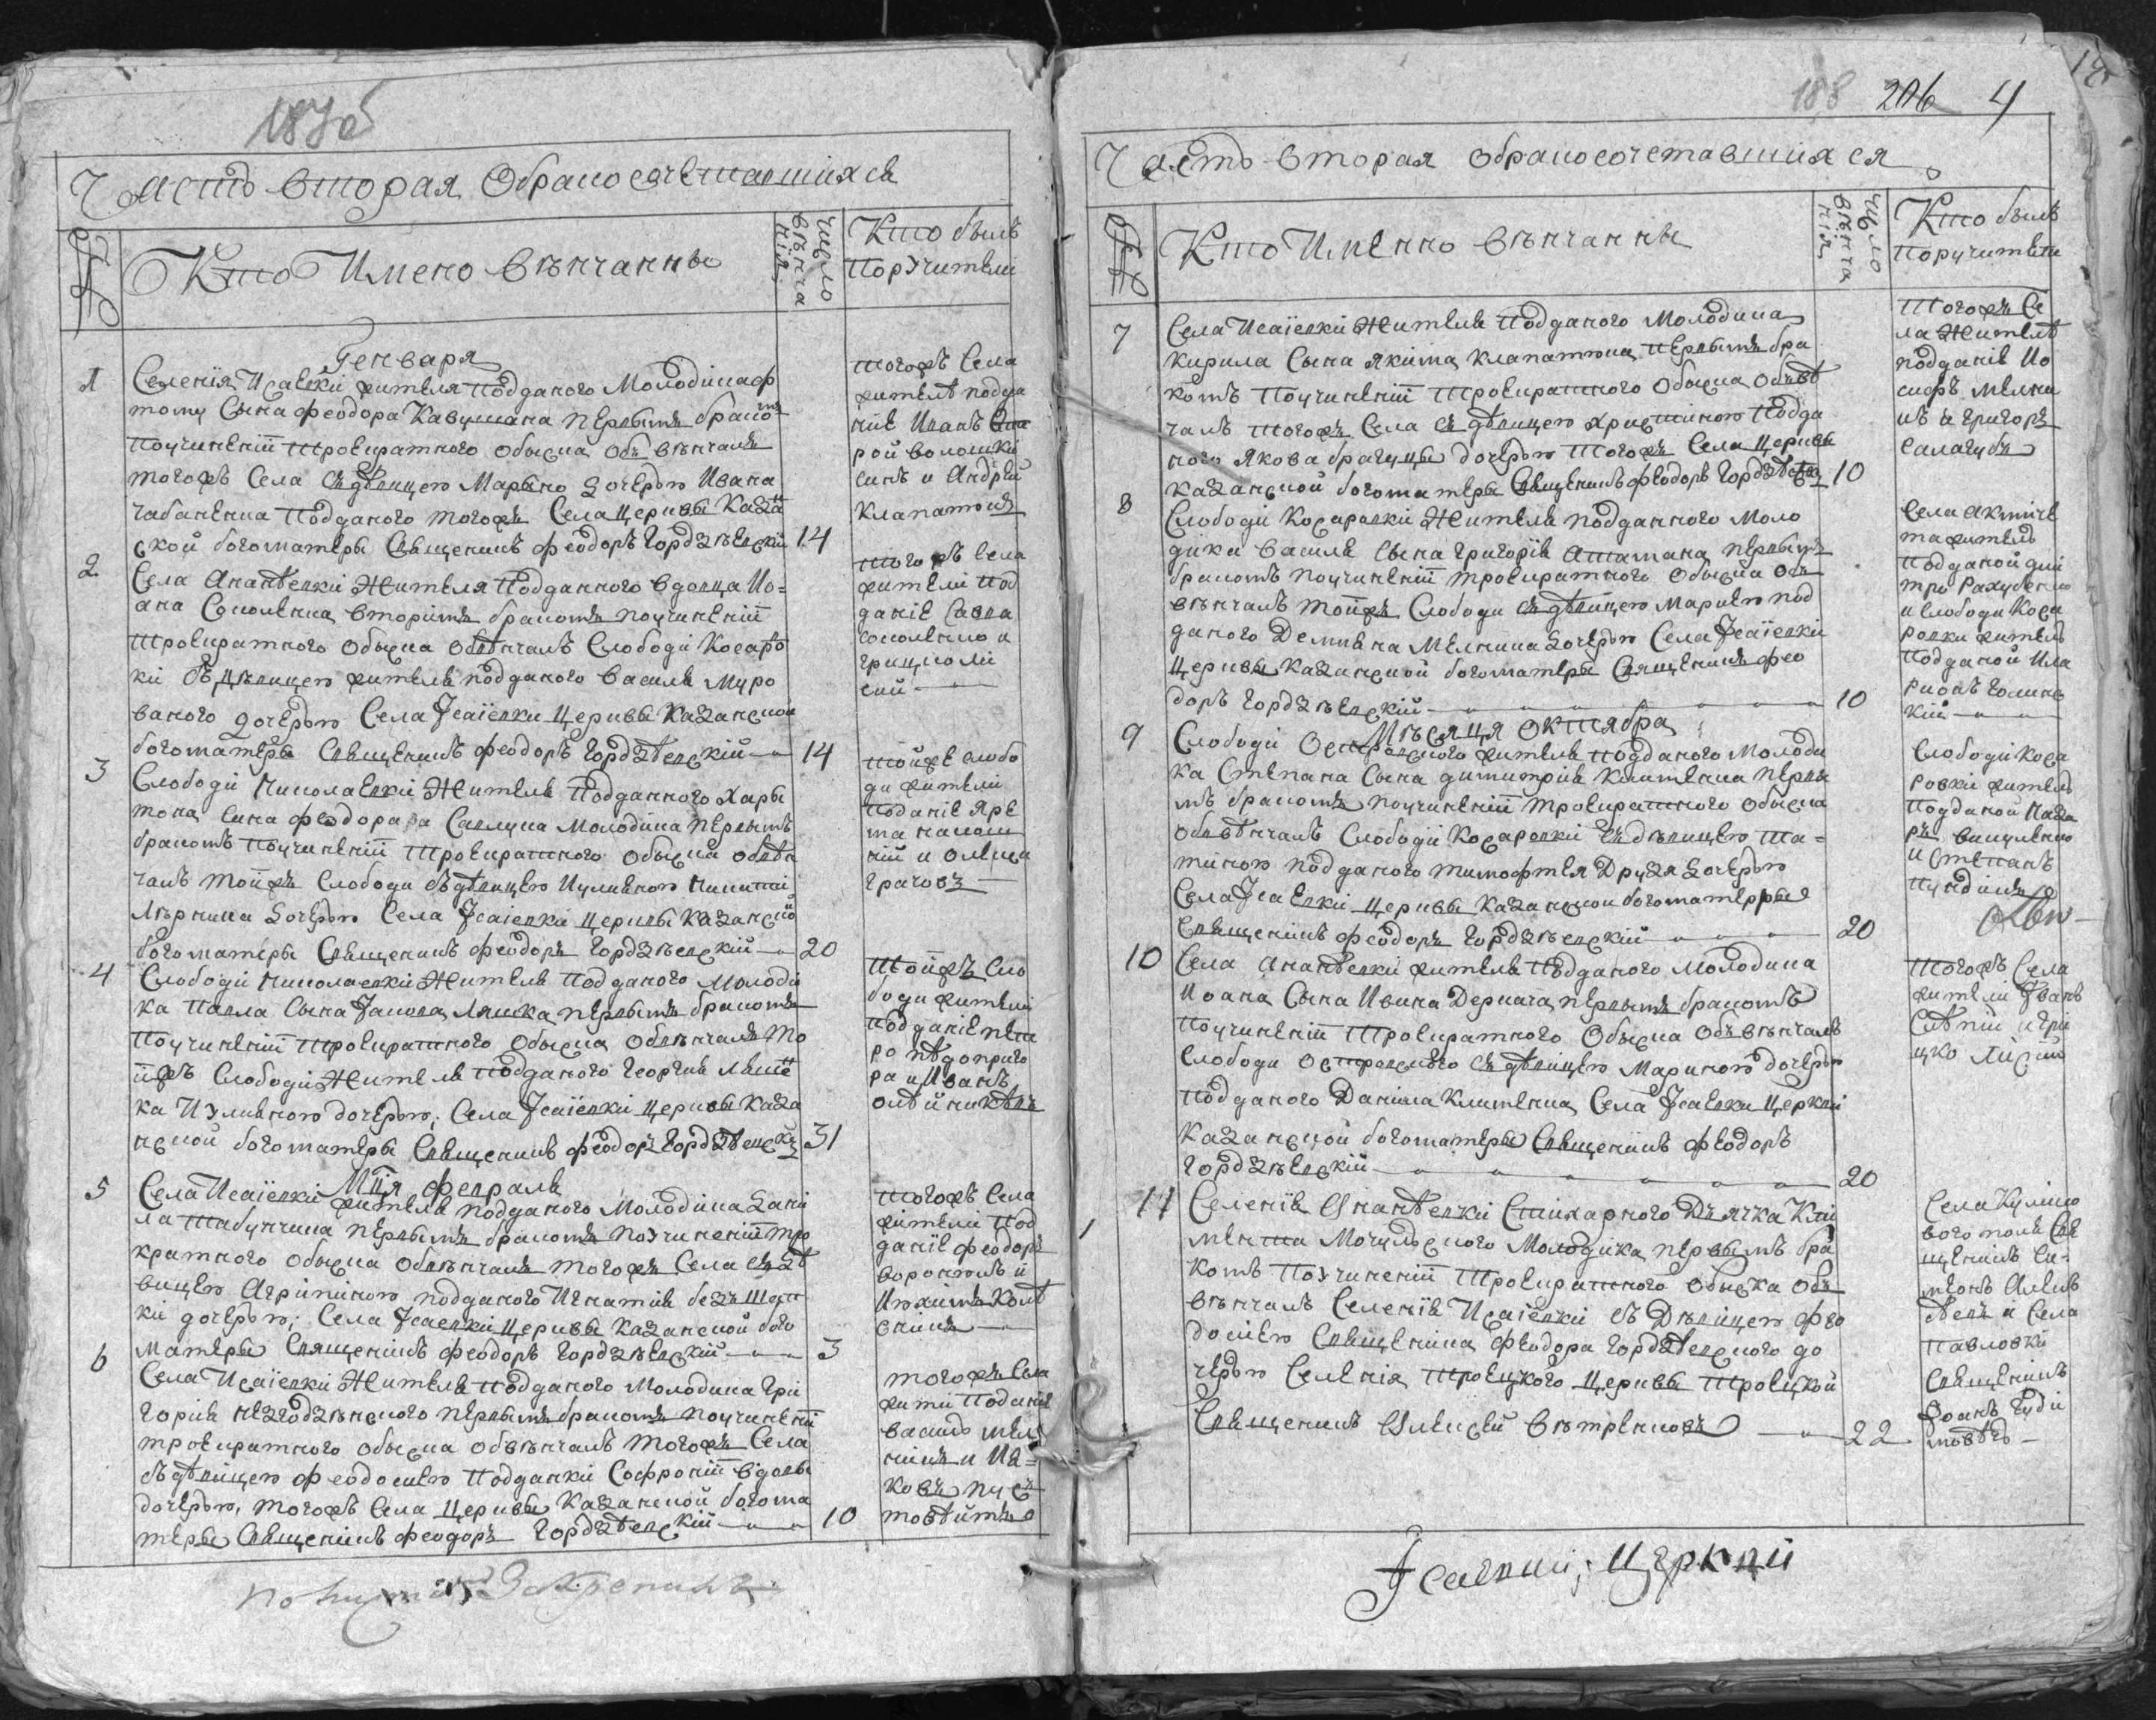 187об
Часть вторая Обракосочетавшихся
Кто Имено венчанны
число венчания
Кто былъ
Поручители
Генваря
1 Селенiя Исаевки жителя Подданого Молодика ф
тому Сына феодора Кавушана первымъ бракомъ
поучиненiи троекратного обыска объ венчалъ
тогожъ Села съ девицею Мариною дочерью Ивана
чабаненка Подданого тогожъ Села церкви Казан
ской богоматери Священникъ феодоръ Гордзѣевскiй 14
тогожъ Села
жителѣ подда
нiе Иванъ
рой волошки
синъ и Андрѣй
Клапатюкъ
2 Села Ананѣевки Жителя Подданного вдовца Ио=
ана Соколенка вторимъ бракомъ поучиненiи
троекратного обыска обвѣнчалъ Слободи Косаро
ки съ дѣвицею жителя подданого Василя Муро
ваного дочерью Села Iсаiевки церкви Казанской
богоматери Священникъ феодоръ Гордзѣевскiй 14
тогожъ Села
жителi Под
данiе Савка
соколенко и
грицко лi
сий
3 Слободи Николаевки Жителя Подданного Хари
тона сина феодора Савлука Молодика первымъ
бракомъ поучиненiи троекратного обыска обвѣн
чалъ тойжъ Слободи съ дѣвицею Иулиeною Никитi
Мѣрника дочерью Села Iсаiевки церквы Казанской
богоматери Священникъ феодоръ Гордзѣевскiй 20
тойже слобо
ди жителi
Поданiе Яре
ма
нiй и Олекса
грачовъ
4 Слободи Николаевки Жителя Подданого Молоди
ка Павла Сына Iакова Ляшка первымъ бракомъ
поучиненiи троекратного обыска обвѣнчалъ То
йжъ Слободи Жителя подданого Георгия
ка Иулиeною дочерью, Села Iсаiевки церкви Каза
нской богоматери Священникъ феодоръ Гордзѣевскiй 31
Тойжъ Сло
боди жителi
подданiе пет
ро
ра и Иванъ
олѣйникъ
Мця февраля
5 Села Исаiевки жителя подданого Молодика Дани
ла Табунчика первымъ бракомъ поучиненiи трое
кратного обыска обвѣнчалъ тогожъ Села съ дѣ
вицею Агрипiною подданого Игнатия безъ Шап
кi дочерью, Села Iсаевки церкви Казанской бого
матери Священникъ феодоръ Гордзѣевскiй 3
тогожъ Села
жителi Под
данiе феодоръ
воронюкъ и
Иоакимъ
6 Села Исаiевки Жителя подданого Молодика Гри
гория незгодзѣнского первымъ бракомъ поучиненiи
троекратного обыска обвѣнчалъ тогожъ Села
съ дѣвицею феодосиею Подданки Софронiи вдови
дочерью, тогожъ Села церкви Казанской богома
тери Священникъ феодоръ Гордзѣевскiй 10
тогожъ Села
жити Поданiе
василь мел
никъ и Иа=
ковъ пус
товойтъ
188 206 4
Часть вторая обракосочетавшихся
Кто Именно венчанны
число венчания
Кто былъ
Поручители
7 Села Исаiевки Жителя Подданого Молодика
Кирила Сына Якима Клапатюка первымъ бра
комъ поучиненiи троекратного обыска обвѣн
чалъ тогожъ Села съ дѣвицею Християною Подда
ного Якова брагуци дочерью тогожъ Села церкви
Казанской богоматери Священникъ феодоръ Гордзѣевскiй 10
Тогожъ Се
ла Жителѣ
подданiе Ио
сифъ мелни
къ и григоръ
Салагубъ
8 Слободи Косаровки Жителя подданного Моло
дика Василя Сына Григорiя Атамана первымъ
бракомъ поучиненiи троекратного обыска объ
вѣнчалъ тойжъ Слободи съ дѣвицею Мариею под
даного Демияна Мелника дочерью Села Iсаiевки
церкви Казанской богоматери Священникъ фео
доръ Гордзѣевскiй 10
Села
жителѣ
Подданой дми
тро
и Слободи Коса
ровки житель
Подданой Ила
рионъ голинс
кiй
Мѣсяця Октября
9 Слободи Островского жителя подданого Молоди
ка Степана Сына димитрия Клименка первы
мъ бракомъ поучиненiи троекратного обыска
обвѣнчалъ Слободи Косаровки съ дѣвицею та=
тiною подданого тимофтея Друзя дочерью
Села Iсаевки церкви Казанской богоматерры
Священникъ феодоръ Гордзѣевскiй 20
Слободи Коса
ровки житель
подданой Наза
ръ
и Степанъ
10 Села Ананѣевки жителя подданого Молодика
Иоана Сына Ивана Деркача первымъ бракомъ
поучиненiи Троекратного Обыска объ вѣнчалъ
Слободи Островского съ дѣвицею Мариною дочерью
подданого Данiила Клименка Села Iсаевки церкви
Казанской богоматери Священникъ феодоръ
Гордзѣевскiй 20
Тогожъ Села
жители Iванъ
Ситнiй и гри
цко Лисий
11 Селенiя Ананѣевки Стихарного Дячка Кли
мента Мочулского Молодика первымъ бра
комъ поучиненiи Троекратного обыска объ
вѣнчалъ Селенiя Исаiевки съ Дѣвицею фео
досиею Священника феодора Гордзѣевского до
черью Селенiя Троецкого церкви Троецкой
Священникъ Алексѣй Вѣтренковъ 22
Села Кулико
вого поля Свя
щенникъ Си=
меонъ
и Села
Павловки
Священникъ
Iоанъ
Iсаевки; Церкви